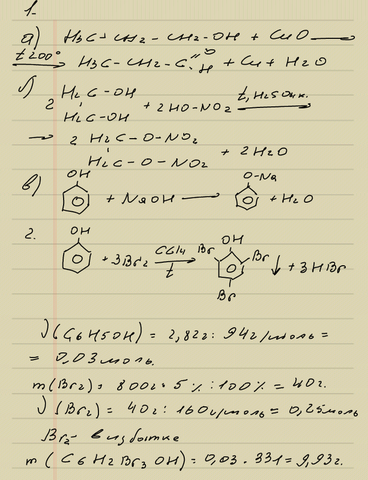 1.
а) H3C-CH2-CH2-OH + CuO ⟶
t 200° ⟶ H3C-CH2-C=O H + Cu + H2O
б) 2 H2C-OH H2C-OH + 2HO-NO2 t, H2SO4 к. ⟶
⟶ 2 H2C-O-NO2 H2C-O-NO2 + 2H2O
в) OH + NaOH ⟶ O-Na + H2O
2. OH + 3Br2 CCl4 t ⟶ OH Br Br Br ↓ + 3HBr
ν(C6H5OH) = 2,82г : 94г/моль =
= 0,03моль.
m(Br2) = 800г · 5% : 100% = 40г.
ν(Br2) = 40г : 160г/моль = 0,25моль
Br2 - в избытке
m(C6H2Br3OH) = 0,03 · 331 = 9,93г.